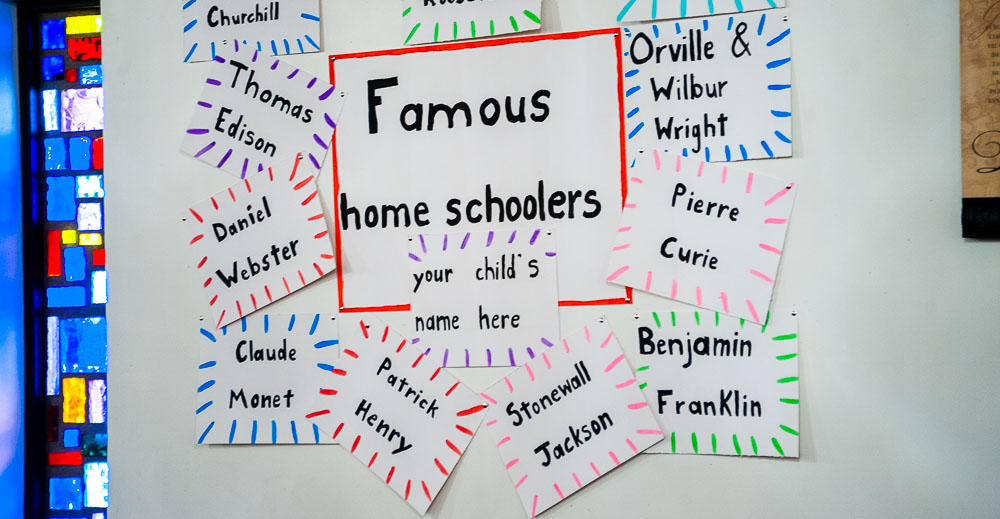 Churchill
Orville &
Wilbur
Wright
Thomas
Edison
Famous
home schoolers
Pierre
Curie
Daniel
Webster
your child's
name here
Claude
Monet
Patrick
Henry
Stonewall
Jackson
Benjamin
Franklin